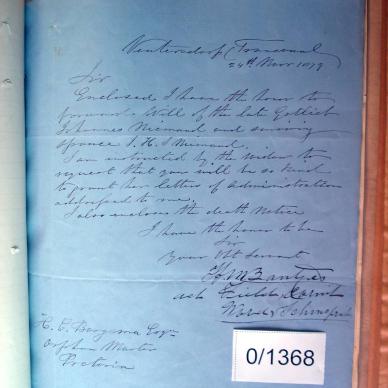 Ventersdorp Transvaal
24th Novr 1879
Sir
Enclosed I have the honor to
forward Will of the late Gotlieb
Johannes Niemand and surviving
spouse J. H. S Niemand.
I am instructed by the widow to
request that you will be so kind
to grant her letters of administration
addressed to me.
I also enclose the death Notice
I have the honor to be
Sir
Your Obt Servant
act Field Cornet
H. C. Bergsma Esqre
Orphan Master
Pretoria
0/1368